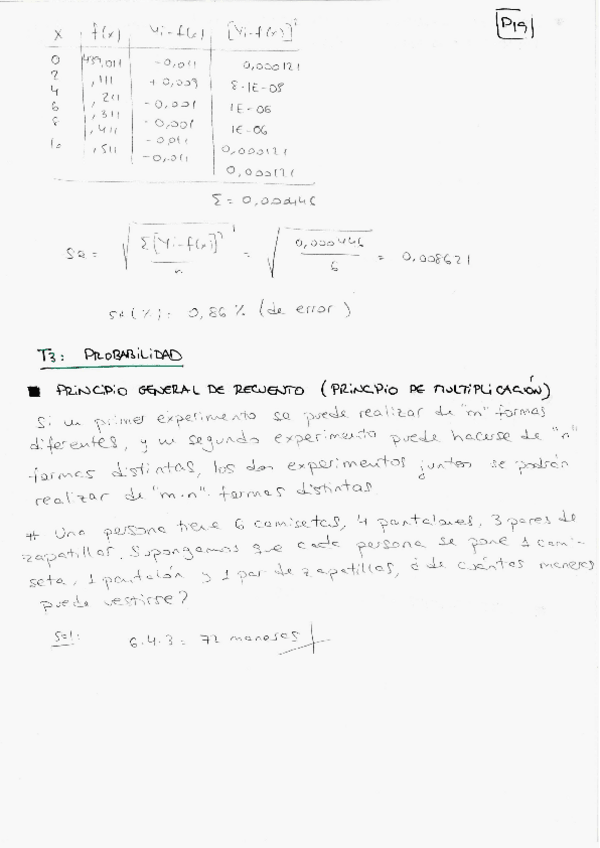 P19
x f(x) Yi-f(x) [Yi-f(x)]²
0 439,011 -0,011 0,000121
2 ,111 +0,009 8.1E-08
4 ,211 -0,001 1E-06
6 ,311 -0,001 1E-06
8 ,411 -0,011 0,000121
10 ,511 -0,011 0,000121
Σ = 0,000446
Se = √ Σ[Yi-f(x)]² / n = √ 0,000446 / 6 = 0,008621
Se(%): 0,86 % (de error)
T3: PROBABILIDAD
■ PRINCIPIO GENERAL DE RECUENTO (PRINCIPIO DE MULTIPLICACIÓN)
Si un primer experimento se puede realizar de "m" formas
diferentes, y un segundo experimento puede hacerse de "n"
formas distintas, los dos experimentos juntos se podrán
realizar de "m.n" formas distintas
# Una persona tiene 6 camisetas, 4 pantalones, 3 pares de
zapatillas. Supongamos que cada persona se pone 1 cami-
seta, 1 pantalón y 1 par de zapatillas, ¿de cuántas maneras
puede vestirse?
Sol: 6.4.3 = 72 maneras